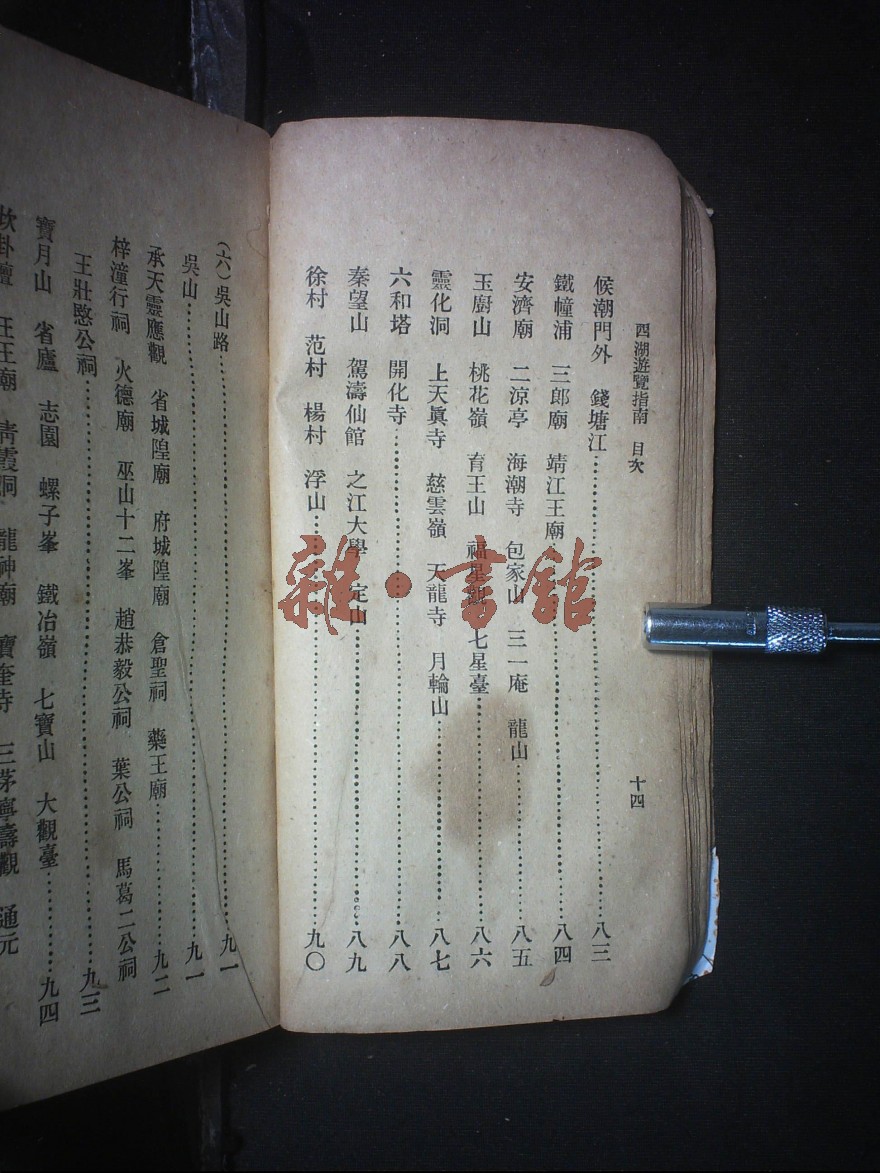 西湖遊覽指南 目次 十四
候潮門外 錢塘江……八三
鐵幢浦 三郎廟 靖江王廟……八四
安濟廟 二涼亭 海潮寺 包家山 三一庵 龍山……八五
玉廚山 桃花嶺 育王山 福星觀 七星臺……八六
靈化洞 上天眞寺 慈雲嶺 天龍寺 月輪山……八七
六和塔 開化寺……八八
秦望山 駕濤仙館 之江大學 定山……八九
徐村 范村 楊村 浮山……九〇
(六)吳山路……九一
吳山……九一
承天靈應觀 省城隍廟 府城隍廟 倉聖祠 藥王廟……九二
梓潼行祠 火德廟 巫山十二峯 趙恭毅公祠 葉公祠 馬葛二公祠
王壯愍公祠……九三
寶月山 省廬 志園 螺子峯 鐵冶嶺 七寶山 大觀臺……九四
坎卦壇 汪王廟 靑霞洞 龍神廟 寶奎寺 三茅寧壽觀 通元
雜·書館